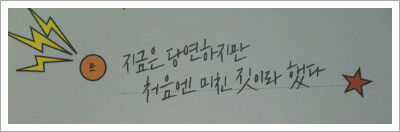 지금은 당연하지만
처음엔 미친 짓이라 했다